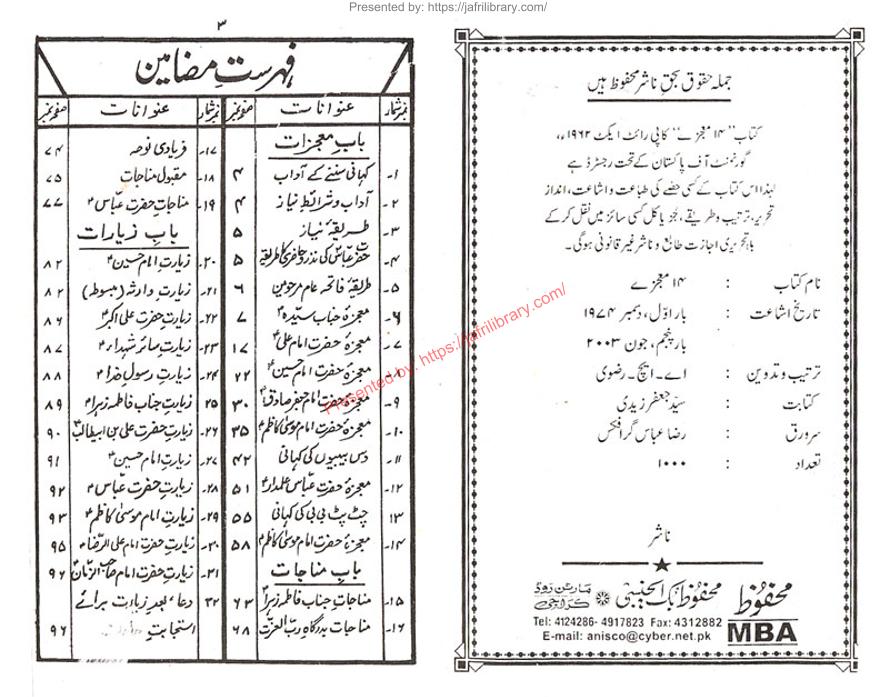 Presented by: https://jafrilibrary.com/
جملہ حقوق بحقِ ناشر محفوظ ہیں
کتاب "۱۴ معجزے" کاپی رائٹ ایکٹ ۱۹۶۲ء،
گورنمنٹ آف پاکستان کے تحت رجسٹرڈ ہے
لہٰذا اس کتاب کے کسی حصّے کی طباعت و اشاعت، انداز
تحریر، ترتیب و طریقے، جُز یا کل کسی سائز میں نقل کر کے
بلا تحریری اجازت طابع و ناشر غیر قانونی ہو گی۔
نام کتاب : ۱۴ معجزے
تاریخ اشاعت : بار اوّل، دسمبر ۱۹۷۴
بار پنجم، جون ۲۰۰۳
ترتیب و تدوین : اے۔ ایچ۔ رضوی
کتابت : سیّد جعفر زیدی
سرورق : رضا عباس گرافکس
تعداد : ۱۰۰۰
ناشر
محفوظ بک ایجنسی مارٹن روڈ کراچی
محفوظ
MBA
Tel: 4124286- 4917823 Fax: 4312882
E-mail: anisco@cyber.net.pk
۳
فہرستِ مضامین
نمبر شمار عنوانات صفحہ نمبر
بابِ معجزات
۱۔ کہانی سننے کے آداب ۴
۲۔ آداب و شرائطِ نیاز ۴
۳۔ طریقۂ نیاز ۵
۴۔ حضرت عباسؑ کی نذر و حاضری کا طریقہ ۵
۵۔ طریقۂ فاتحہ عام مرحومین ۶
۶۔ معجزہ جناب سیدہؑ ۷
۷۔ معجزہ حضرت امام علیؑ ۱۷
۸۔ معجزہ حضرت امام حسینؑ ۲۲
۹۔ معجزہ حضرت امام جعفر صادقؑ ۳۰
۱۰۔ معجزہ حضرت امام موسیٰ کاظمؑ ۳۵
۱۱۔ دس بیبیوں کی کہانی ۴۲
۱۲۔ معجزہ حضرت عباسؑ علمدارؑ ۵۱
۱۳ چٹ پٹ بی بی کی کہانی ۵۵
۱۴۔ معجزہ حضرت امام موسیٰ کاظمؑ ۵۸
بابِ مناجات
۱۵۔ مناجات جناب فاطمہ زہراؑ ۶۳
۱۶۔ مناجات بدرگاہِ ربّ العزّت ۶۸
نمبر شمار عنوانات صفحہ نمبر
۱۷۔ فریادی نوحہ ۷۴
۱۸۔ مقبول مناجات ۷۵
۱۹۔ مناجات حضرت عبّاسؑ ۷۷
بابِ زیارات
۲۰۔ زیارتِ امام حسینؑ ۸۲
۲۱۔ زیارت وارثہ (مبسوطہ) ۸۲
۲۲۔ زیارتِ حضرت علی اکبرؑ ۸۶
۲۳۔ زیارتِ سائر شہداءؑ ۸۷
۲۴۔ زیارتِ رسولِ خداؐ ۸۸
۲۵ زیارتِ جناب فاطمہ زہراؑ ۸۹
۲۶۔ زیارتِ حضرت علی بن ابیطالبؑ ۹۰
۲۷۔ زیارتِ امام حسینؑ ۹۱
۲۸۔ زیارتِ حضرت عبّاسؑ ۹۲
۲۹۔ زیارتِ امام موسیٰ کاظمؑ ۹۳
۳۰۔ زیارتِ حضرت امام علی الرّضاؑ ۹۵
۳۱۔ زیارتِ حضرت امام صاحب الزّمانؑ ۹۶
۳۲ دعاء بعدِ زیارت برائے
استجابتِ ۹۶
Presented by: https://jafrilibrary.com/